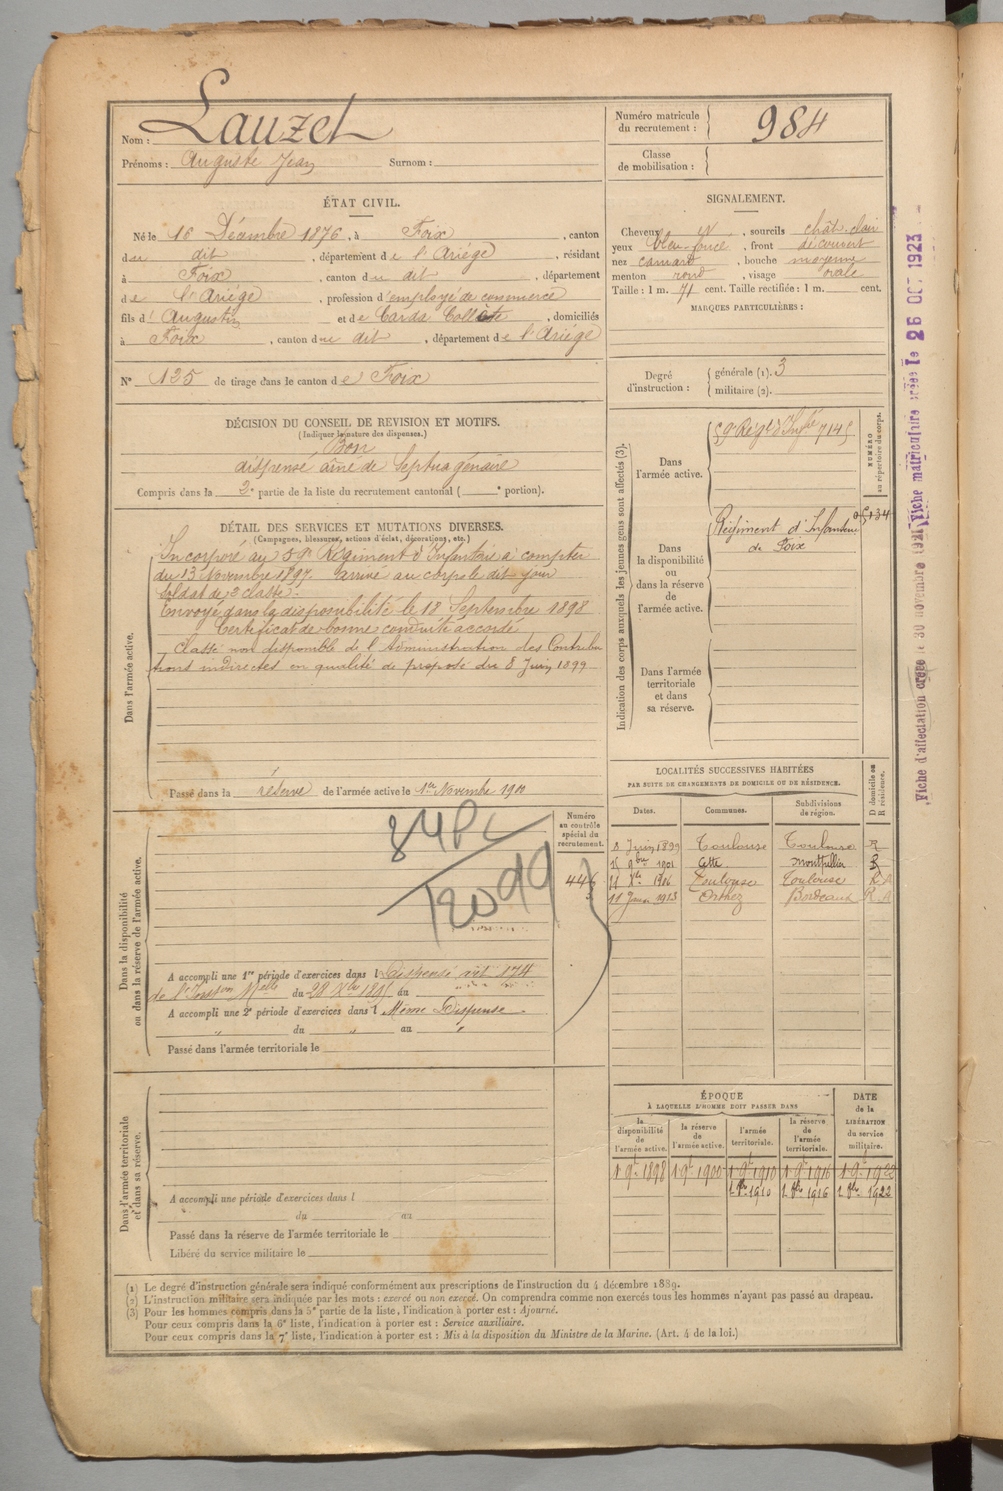 Nom : Lauzet
Prénoms : Auguste Jean Surnom :
Numéro matricule du recrutement : 984
Classe de mobilisation :
ÉTAT CIVIL.
Né le 16 Décembre 1876, à Foix, canton
du dit, département de l'Ariège, résidant
à Foix, canton du dit, département
de l'Ariège, profession d'employé de commerce
fils d' Augustin et de Carda Collète, domiciliés
à Foix, canton du dit, département de l'Ariège
N° 125 de tirage dans le canton de Foix
SIGNALEMENT.
Cheveux et, sourcils chât. clair
yeux bleu foncé, front découvert
nez camard, bouche moyenne
menton rond, visage ovale
Taille : 1 m. 71 cent. Taille rectifiée : 1 m. cent.
MARQUES PARTICULIÈRES :
Degré d'instruction : générale (1). 3
militaire (2).
DÉCISION DU CONSEIL DE REVISION ET MOTIFS.
(Indiquer la nature des dispenses.)
Bon
dispensé aîné de Septuagénaire
Compris dans la 2e partie de la liste du recrutement cantonal ( e portion).
DÉTAIL DES SERVICES ET MUTATIONS DIVERSES.
(Campagnes, blessures, actions d'éclat, décorations, etc.)
Dans l'armée active.
Incorporé au 59e Régiment d'Infanterie à compter
du 13 Novembre 1897. arrivé au corps le dit jour
soldat de 2e classe.
Envoyé dans la disponibilité le 18 Septembre 1898
Certificat de bonne conduite accordé
Classé non disponible de l'Administration des Contribu
tions indirectes en qualité de préposé du 8 Juin 1899
Passé dans la réserve de l'armée active le 1er Novembre 1900
Indication des corps auxquels les jeunes gens sont affectés (3).
NUMÉRO au répertoire du corps.
Dans l'armée active.
59e Régt d'Infrie 7145
Dans la disponibilité ou dans la réserve de l'armée active.
Régiment d'Infanterie
de Foix
Dans l'armée territoriale et dans sa réserve.
LOCALITÉS SUCCESSIVES HABITÉES
PAR SUITE DE CHANGEMENTS DE DOMICILE OU DE RÉSIDENCE.
D domicile ou R résidence.
Dates. Communes. Subdivisions de région.
8 Juin 1899 Toulouse Toulouse R
9bre 1901 Cette Montpellier R
Toulouse Toulouse R A
11 1913 Orthez Bordeaux R A
Dans la disponibilité ou dans la réserve de l'armée active.
Numéro au contrôle spécial du recrutement.
446
A accompli une 1re période d'exercices dans l Dispensé art 174
de l'Inston Melle du 28 Xbre 1895 au
A accompli une 2e période d'exercices dans l Même Dispense
" du " au "
Passé dans l'armée territoriale le
Dans l'armée territoriale et dans sa réserve.
A accompli une période d'exercices dans l
du au
Passé dans la réserve de l'armée territoriale le
Libéré du service militaire le
ÉPOQUE
À LAQUELLE L'HOMME DOIT PASSER DANS
DATE de la LIBÉRATION du service militaire.
la disponibilité de l'armée active. la réserve de l'armée active. l'armée territoriale. la réserve de l'armée territoriale.
1 9e 1898 1 9e 1900 1 9e 1910 1 9e 1916 1 9e 1922
1 8bre 1910 1 8bre 1916 1 8bre 1922
(1) Le degré d'instruction générale sera indiqué conformément aux prescriptions de l'instruction du 4 décembre 1889.
(2) L'instruction militaire sera indiquée par les mots : exercé ou non exercé. On comprendra comme non exercés tous les hommes n'ayant pas passé au drapeau.
(3) Pour les hommes compris dans la 5e partie de la liste, l'indication à porter est : Ajourné.
Pour ceux compris dans la 6e liste, l'indication à porter est : Service auxiliaire.
Pour ceux compris dans la 7e liste, l'indication à porter est : Mis à la disposition du Ministre de la Marine. (Art. 4 de la loi.)
Fiche d'affectation créée le 30 novembre 1921 Fiche matriculaire créée le 26 OCT 1923